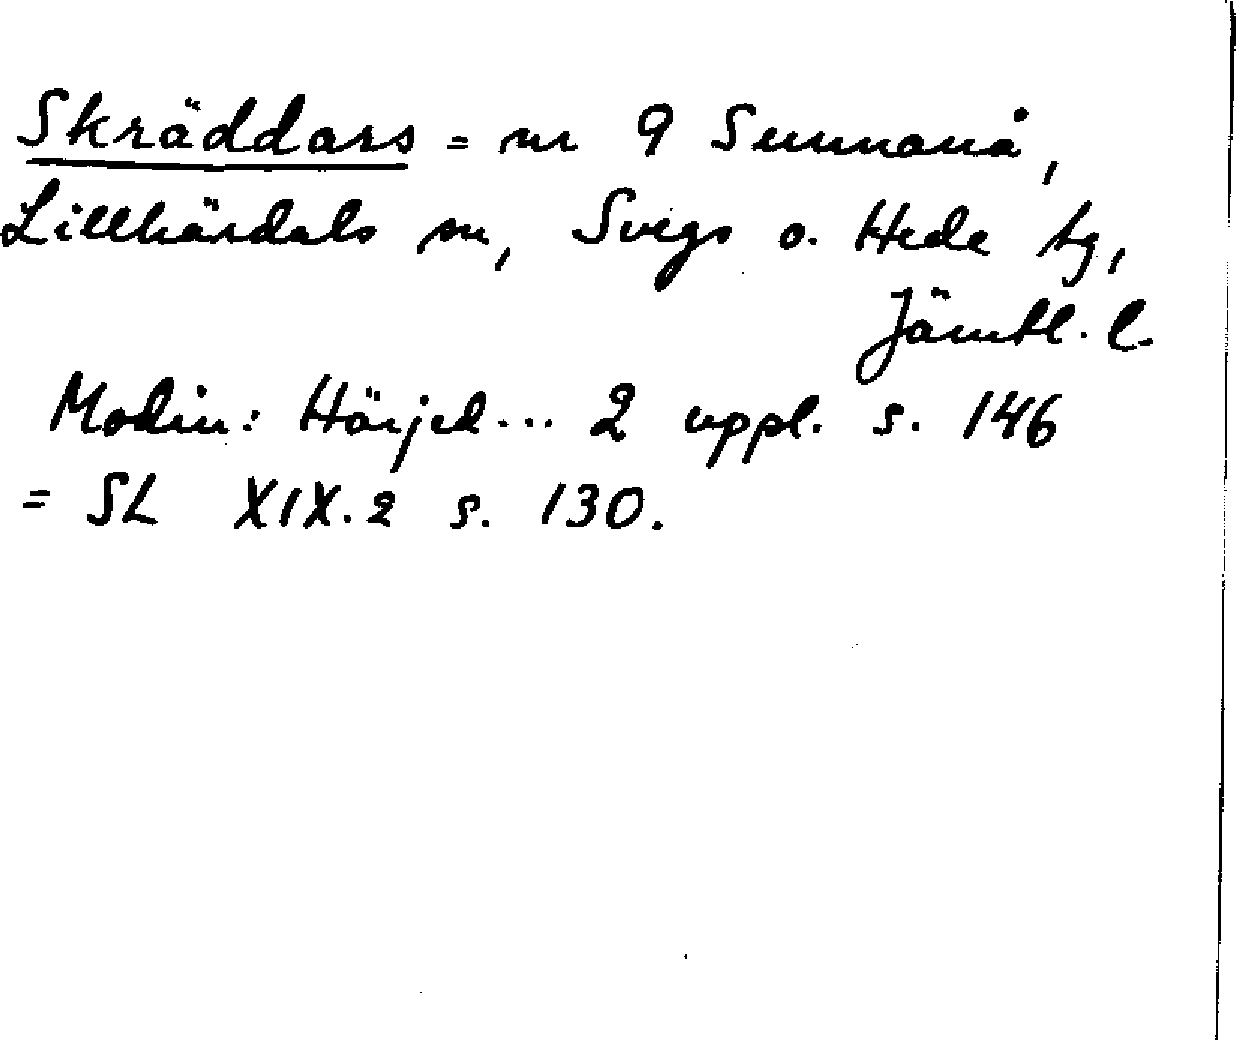 Skräddars = nr 9 Sunnanå,
Lillhärdals sn, Svegs o. Hede tg,
Jämtl. l.
Modin: Härjed... 2 uppl. s. 146
= SL XIX.2 s. 130.